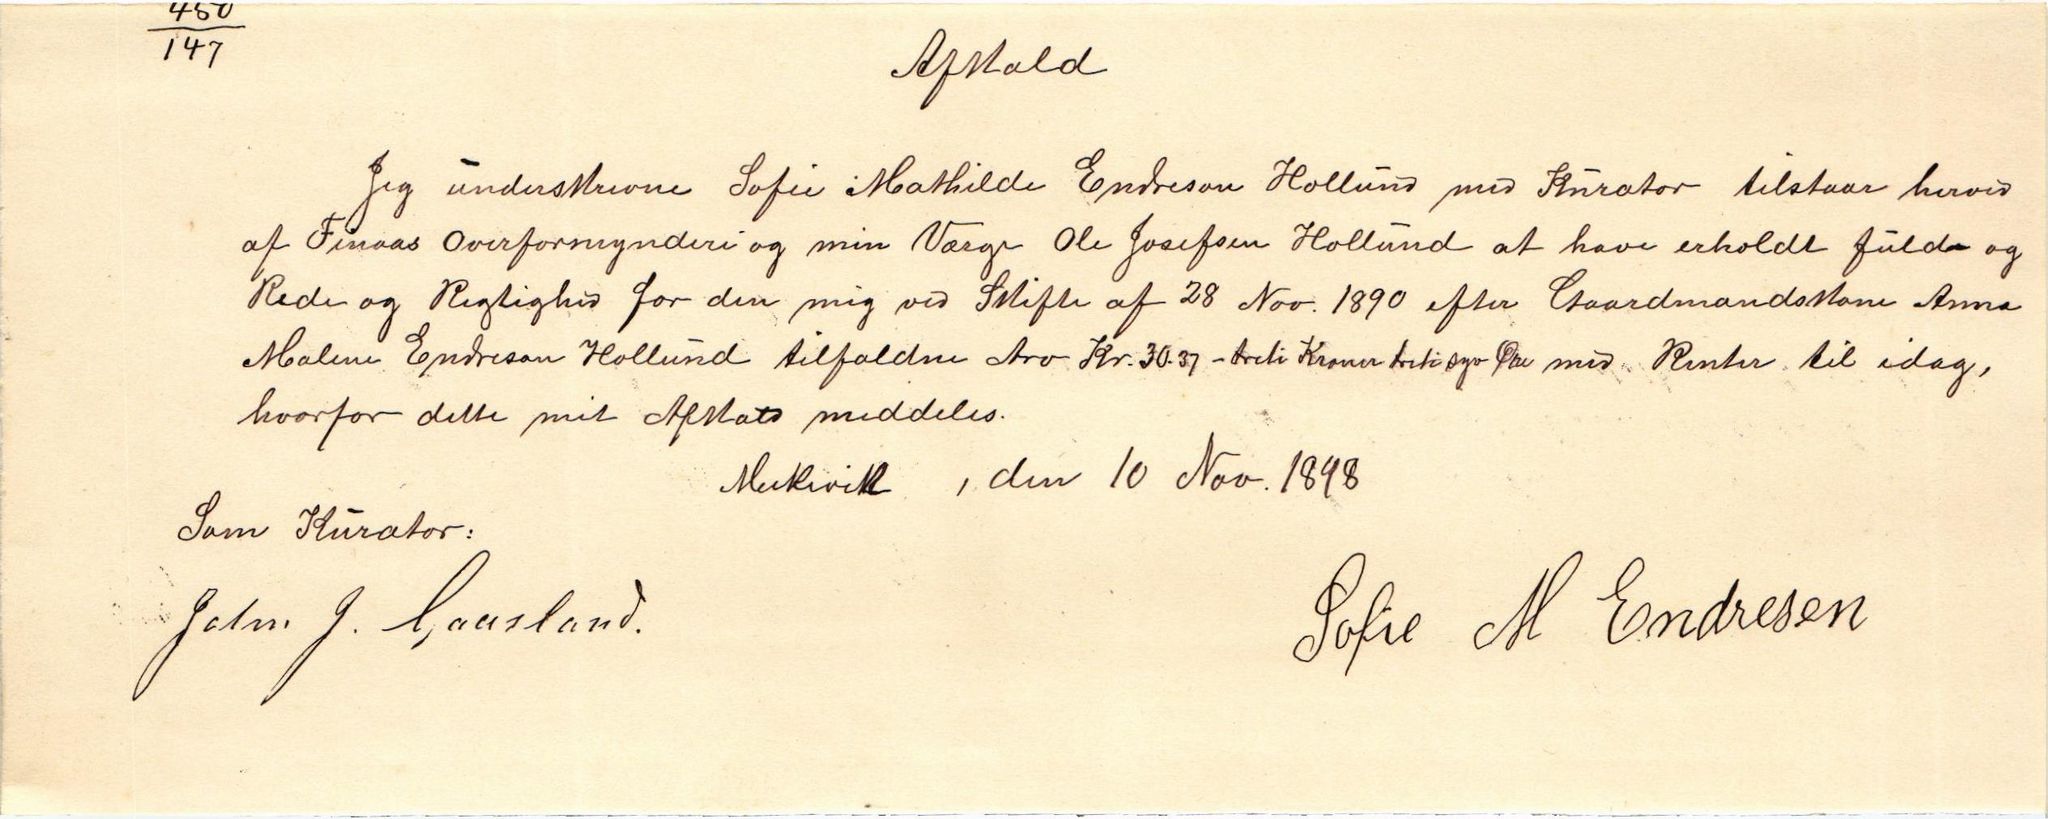 450
147
Afkald
Jeg underskrevne Sofie Mathilde Endresen Hollund med Kurator tilstaar herved
af Finaas Overformynderi og min Værge Ole Josefsen Hollund at have erholdt fuld og
Rede og Rigtighed for den mig ved Skifte af 28 Nov. 1890 efter Gaardmandskone Anna
Malene Endresen Hollund tilfaldne Arv Kr. 30.37 - treti Kroner treti syv Øre med Renter til idag,
hvorfor dette mit Afkald meddeles.
, den 10 Nov. 1898
Som Kurator:
John J. Gaasland.
Sofie M Endresen